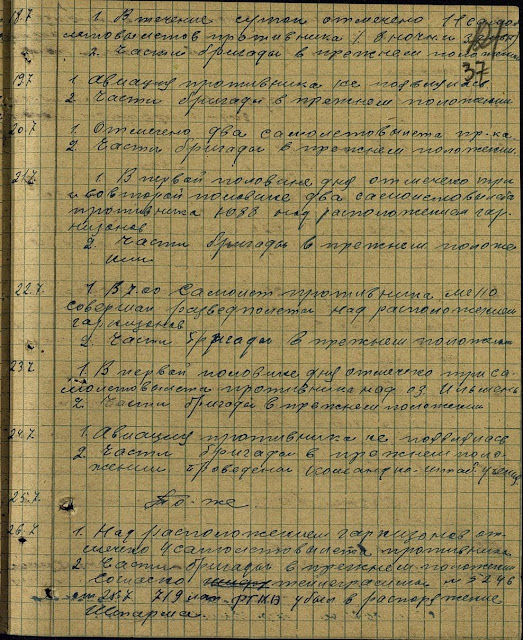 18.7 1. В течение суток отмечено 11 самоле
товылетов противника
2. Части бригады в прежнем положении
37
19.7 1 Авиация противника не появилась
2 Части бригады в прежнем положении
20.7 1. Отмечено два самолетовылета пр-ка
2. Части бригады в прежнем положении.
21.7. 1. В первой половине дня отмечено три
и во второй половине два самолетовылета
противника Ю88 над расположением гар-
низонов
2. Части бригады в прежнем положе
нии
22.7. 1. В 7.00 самолет противника МЕ110
совершал разведполеты над расположением
гарнизонов
2. Части бригады в прежнем положении
23.7. 1. В первой половине дня отмечено три са-
молетовылета противника над оз Ильмень
2. Части бригады в прежнем положении
24.7. 1. Авиация противника не появилась
2 Части бригады в прежнем поло-
жении. Проведены командно-штаб учения
25.7. То-же
26.7 1. Над расположением гарнизонов от-
мечено 4 самолетовылета противника
2. Части бригады в прежнем положении
Согласно телеграммы №
от 25.7 719 убыл в распоряжение
Штарма.